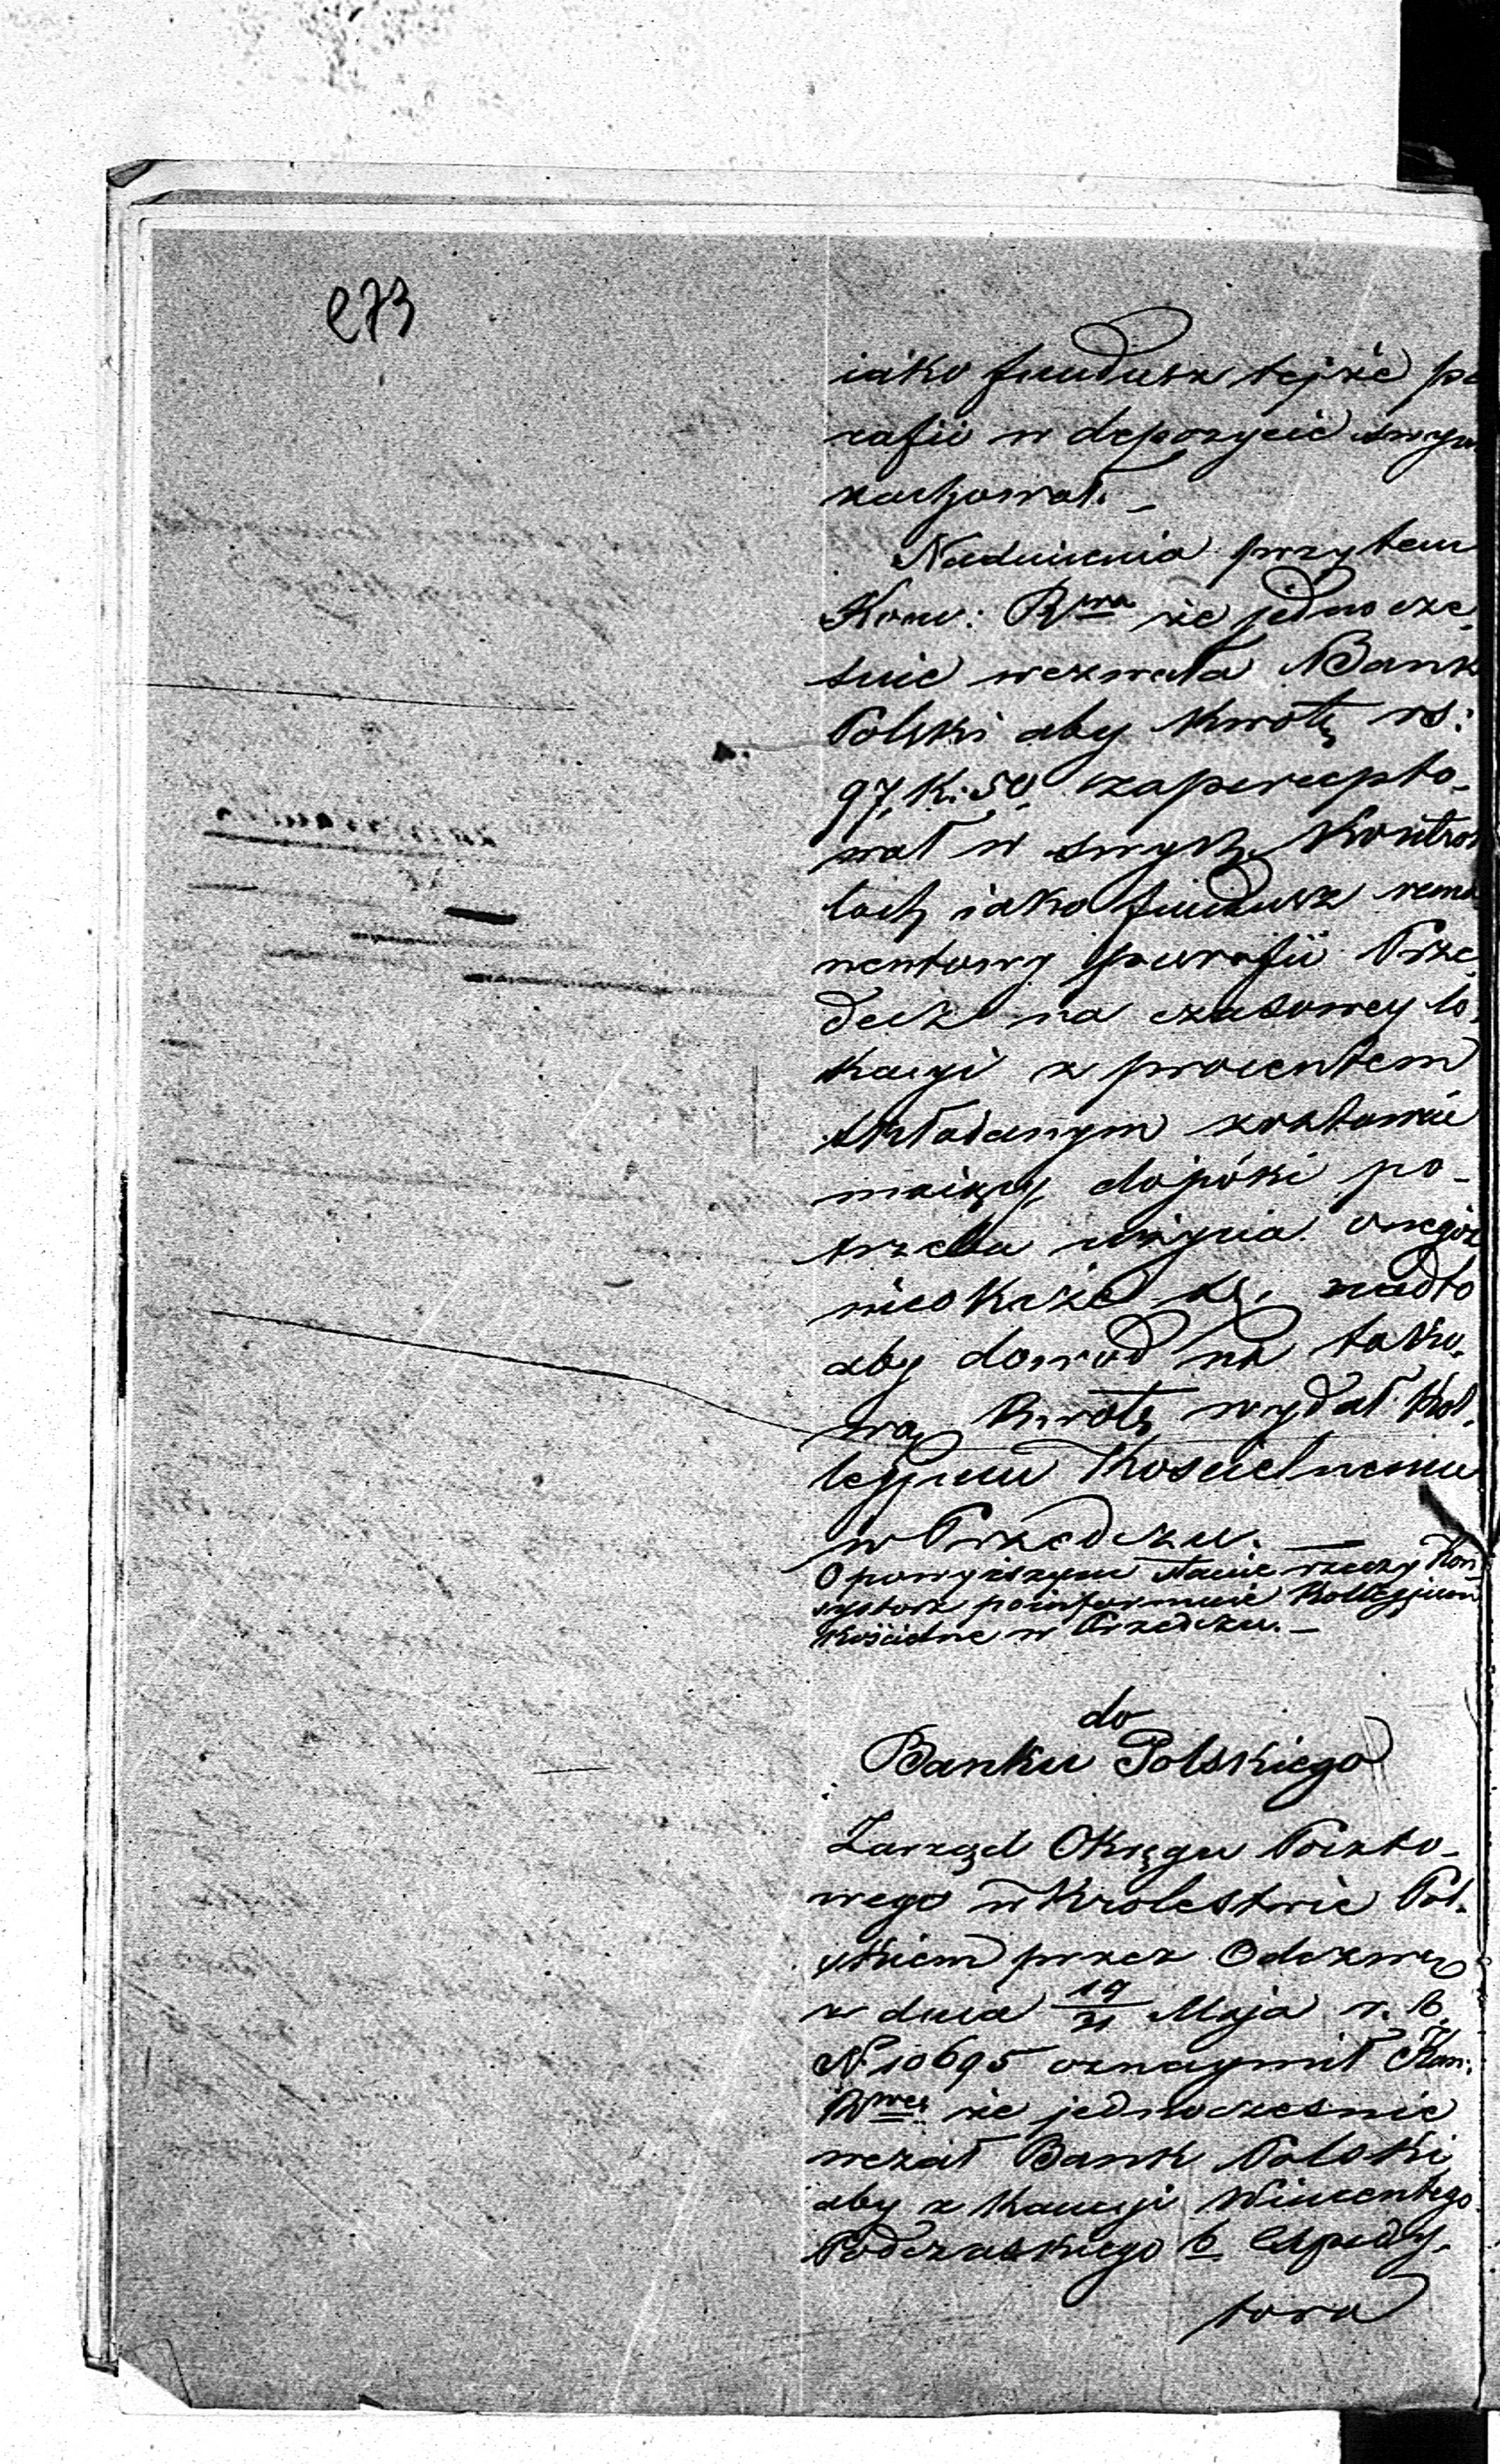 273
iako fundusz tejże pa
rafii w depozycie swym
zachował. –
Nadmienia przytem
Kom: Rwa że jednocze,
śnie wezwała Bank
Polski aby kwotę rs:
97, k: 50, zapercepto-
wał w swych kontro
lach iako fundusz rema
nentowy parafii Prze,
decz na czasowey lo,
kacyi z procentem
składanym zostawać
maiący, dopóki po-
trzeba użycia onegoż
nieokaże się, nadto
aby dowod na tako,
wą kwotę wydał Kol,
legjum Kościelnemu
w Przedczu. —
O powyższym stanie rzeczy Kon
systorz poinformuie Kollegjum
Kościelne w Przedczu. –
do
Banku Polskiego
Zarząd Okręgu Poczto-
wego w Krolestwie Pol,
skiem przez Odezwę
z dnia 19/31 Maja r. b.
N. 10695 oznaymił Kom:
Rwey że jednocześnie
wezał Bank Polski
aby z kaucyi Wincentego
Podczaskiego b. Expedy,
tora